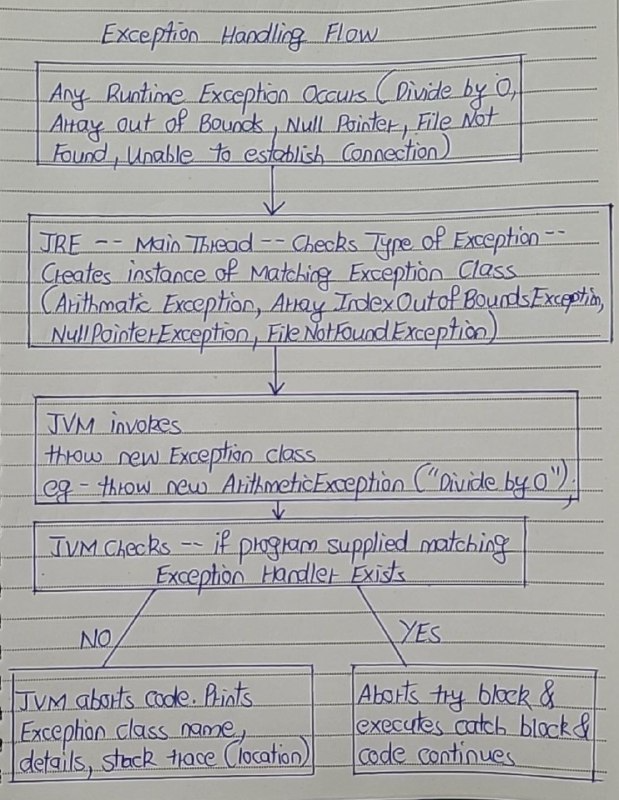 Exception Handling Flow
Any Runtime Exception Occurs (Divide by 0,
Array out of Bounds, Null Pointer, File Not
Found, Unable to establish Connection)
JRE -- Main Thread -- Checks Type of Exception --
Creates instance of Matching Exception Class
(Arithmatic Exception, Array IndexOutofBoundsException,
NullPointerException, FileNotFoundException)
JVM invokes
throw new Exception class
eg - throw new ArithmeticException ("Divide by 0");
JVM Checks -- if program supplied matching
Exception Handler Exists
NO
YES
JVM aborts code. Prints
Exception class name,
details, stack trace (location)
Aborts try block &
executes catch block &
code continues